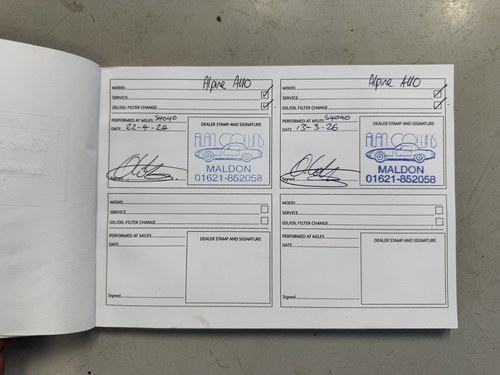 MODEL Alpine A110
SERVICE
OIL/OIL FILTER CHANGE
PERFORMED AT MILES 54040
DATE 22-4-24
DEALER STAMP AND SIGNATURE
ALAN COLLINS
MALDON
01621-852058
Signed
MODEL Alpine A110
SERVICE
OIL/OIL FILTER CHANGE
PERFORMED AT MILES 54040
DATE 13-3-26
DEALER STAMP AND SIGNATURE
ALAN COLLINS
MALDON
01621-852058
Signed
MODEL
SERVICE
OIL/OIL FILTER CHANGE
PERFORMED AT MILES
DATE
DEALER STAMP AND SIGNATURE
Signed
MODEL
SERVICE
OIL/OIL FILTER CHANGE
PERFORMED AT MILES
DATE
DEALER STAMP AND SIGNATURE
Signed